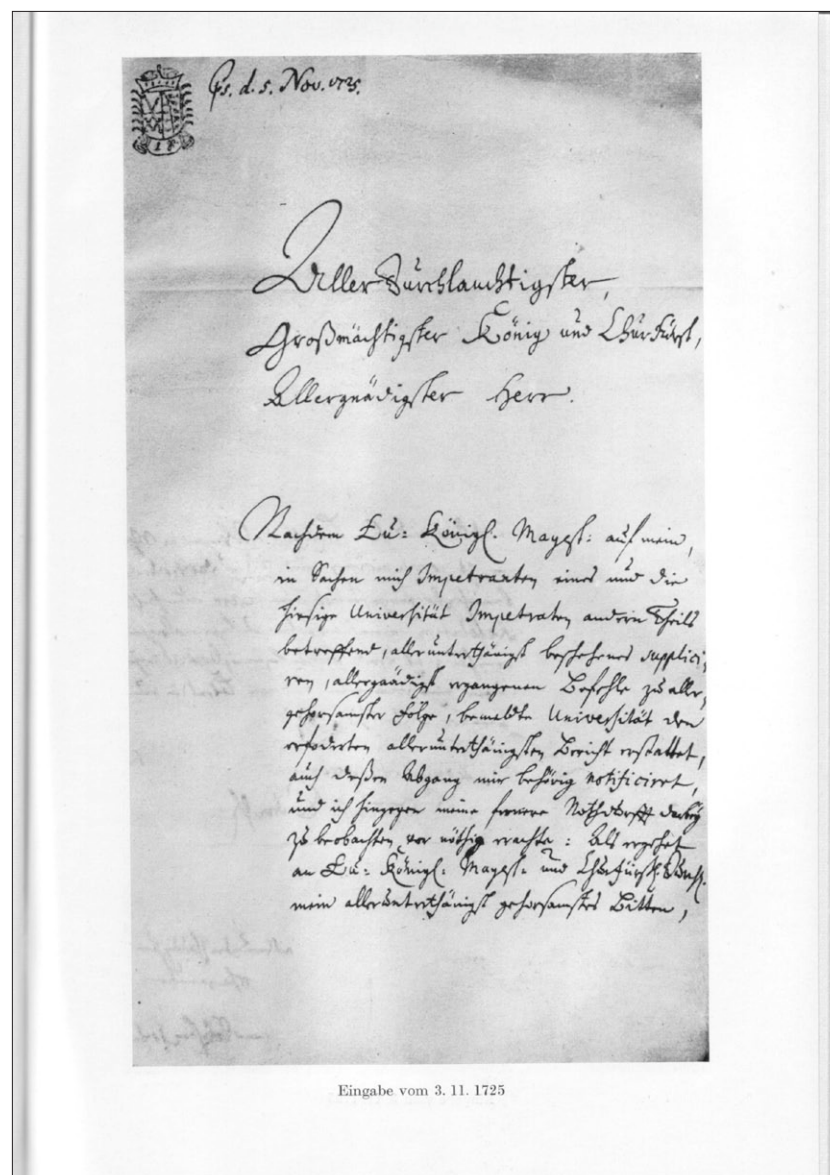 Ps. d. 5. Nov. 1725.
1 F
AllerDurchlauchtigster,
Großmächtigster König und ChurFürst,
Allergnädigster Herr.
Nachdem Eu: Königl. Mayest: auf mein,
in Sachen mich Impetranten eines und die
hiesige Universität Impetraten andern Theils
betreffend, allerunterthänigst beschehenes supplici-
ren, allergnädigst ergangenen Befehle zu aller-
gehorsamster Folge, bemeldte Universität den
erforderten allerunterthänigsten Bericht erstattet,
auch deßen Abgang mir behörig notificiret,
und ich hingegen meine fernere Nothdurfft darbey
zu beobachten, vor nöthig erachte: Als ergehet
an Eu: Königl: Mayest: und Churfürstl. Durchl.
mein allerunterthänigst gehorsamstes Bitten,
Eingabe vom 3. 11. 1725